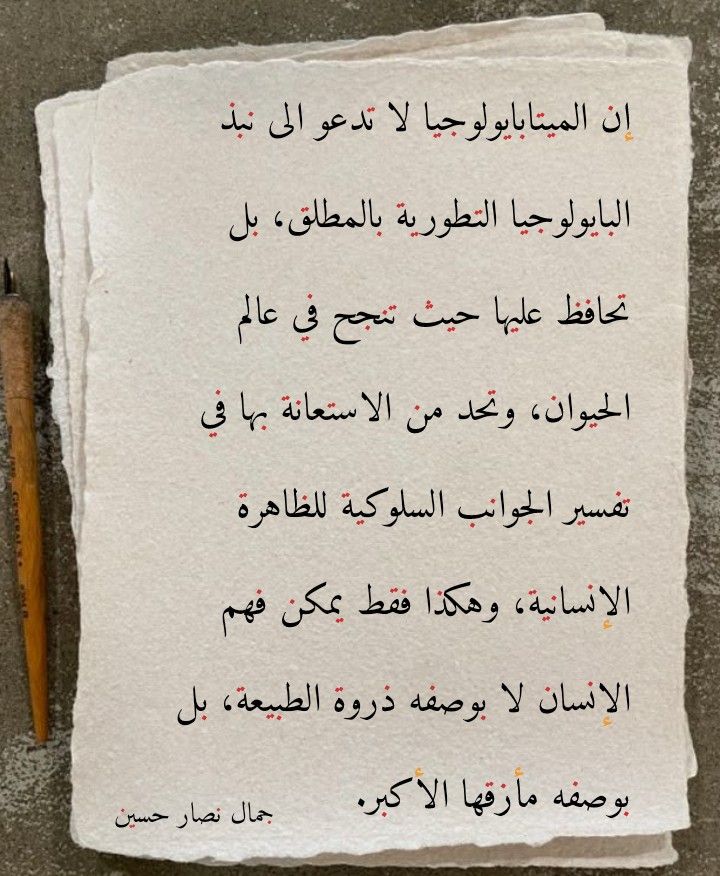 إن الميتابايولوجيا لا تدعو الى نبذ
البايولوجيا التطورية بالمطلق، بل
تحافظ عليها حيث تنجح في عالم
الحيوان، وتحد من الاستعانة بها في
تفسير الجوانب السلوكية للظاهرة
الإنسانية، وهكذا فقط يمكن فهم
الإنسان لا بوصفه ذروة الطبيعة، بل
بوصفه مأزقها الأكبر.
جمال نصار حسين